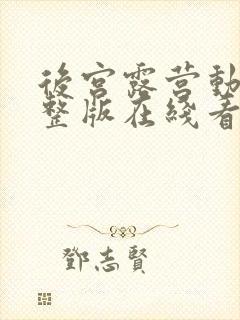 後宮露营動
整版在綫看
鄧志賢